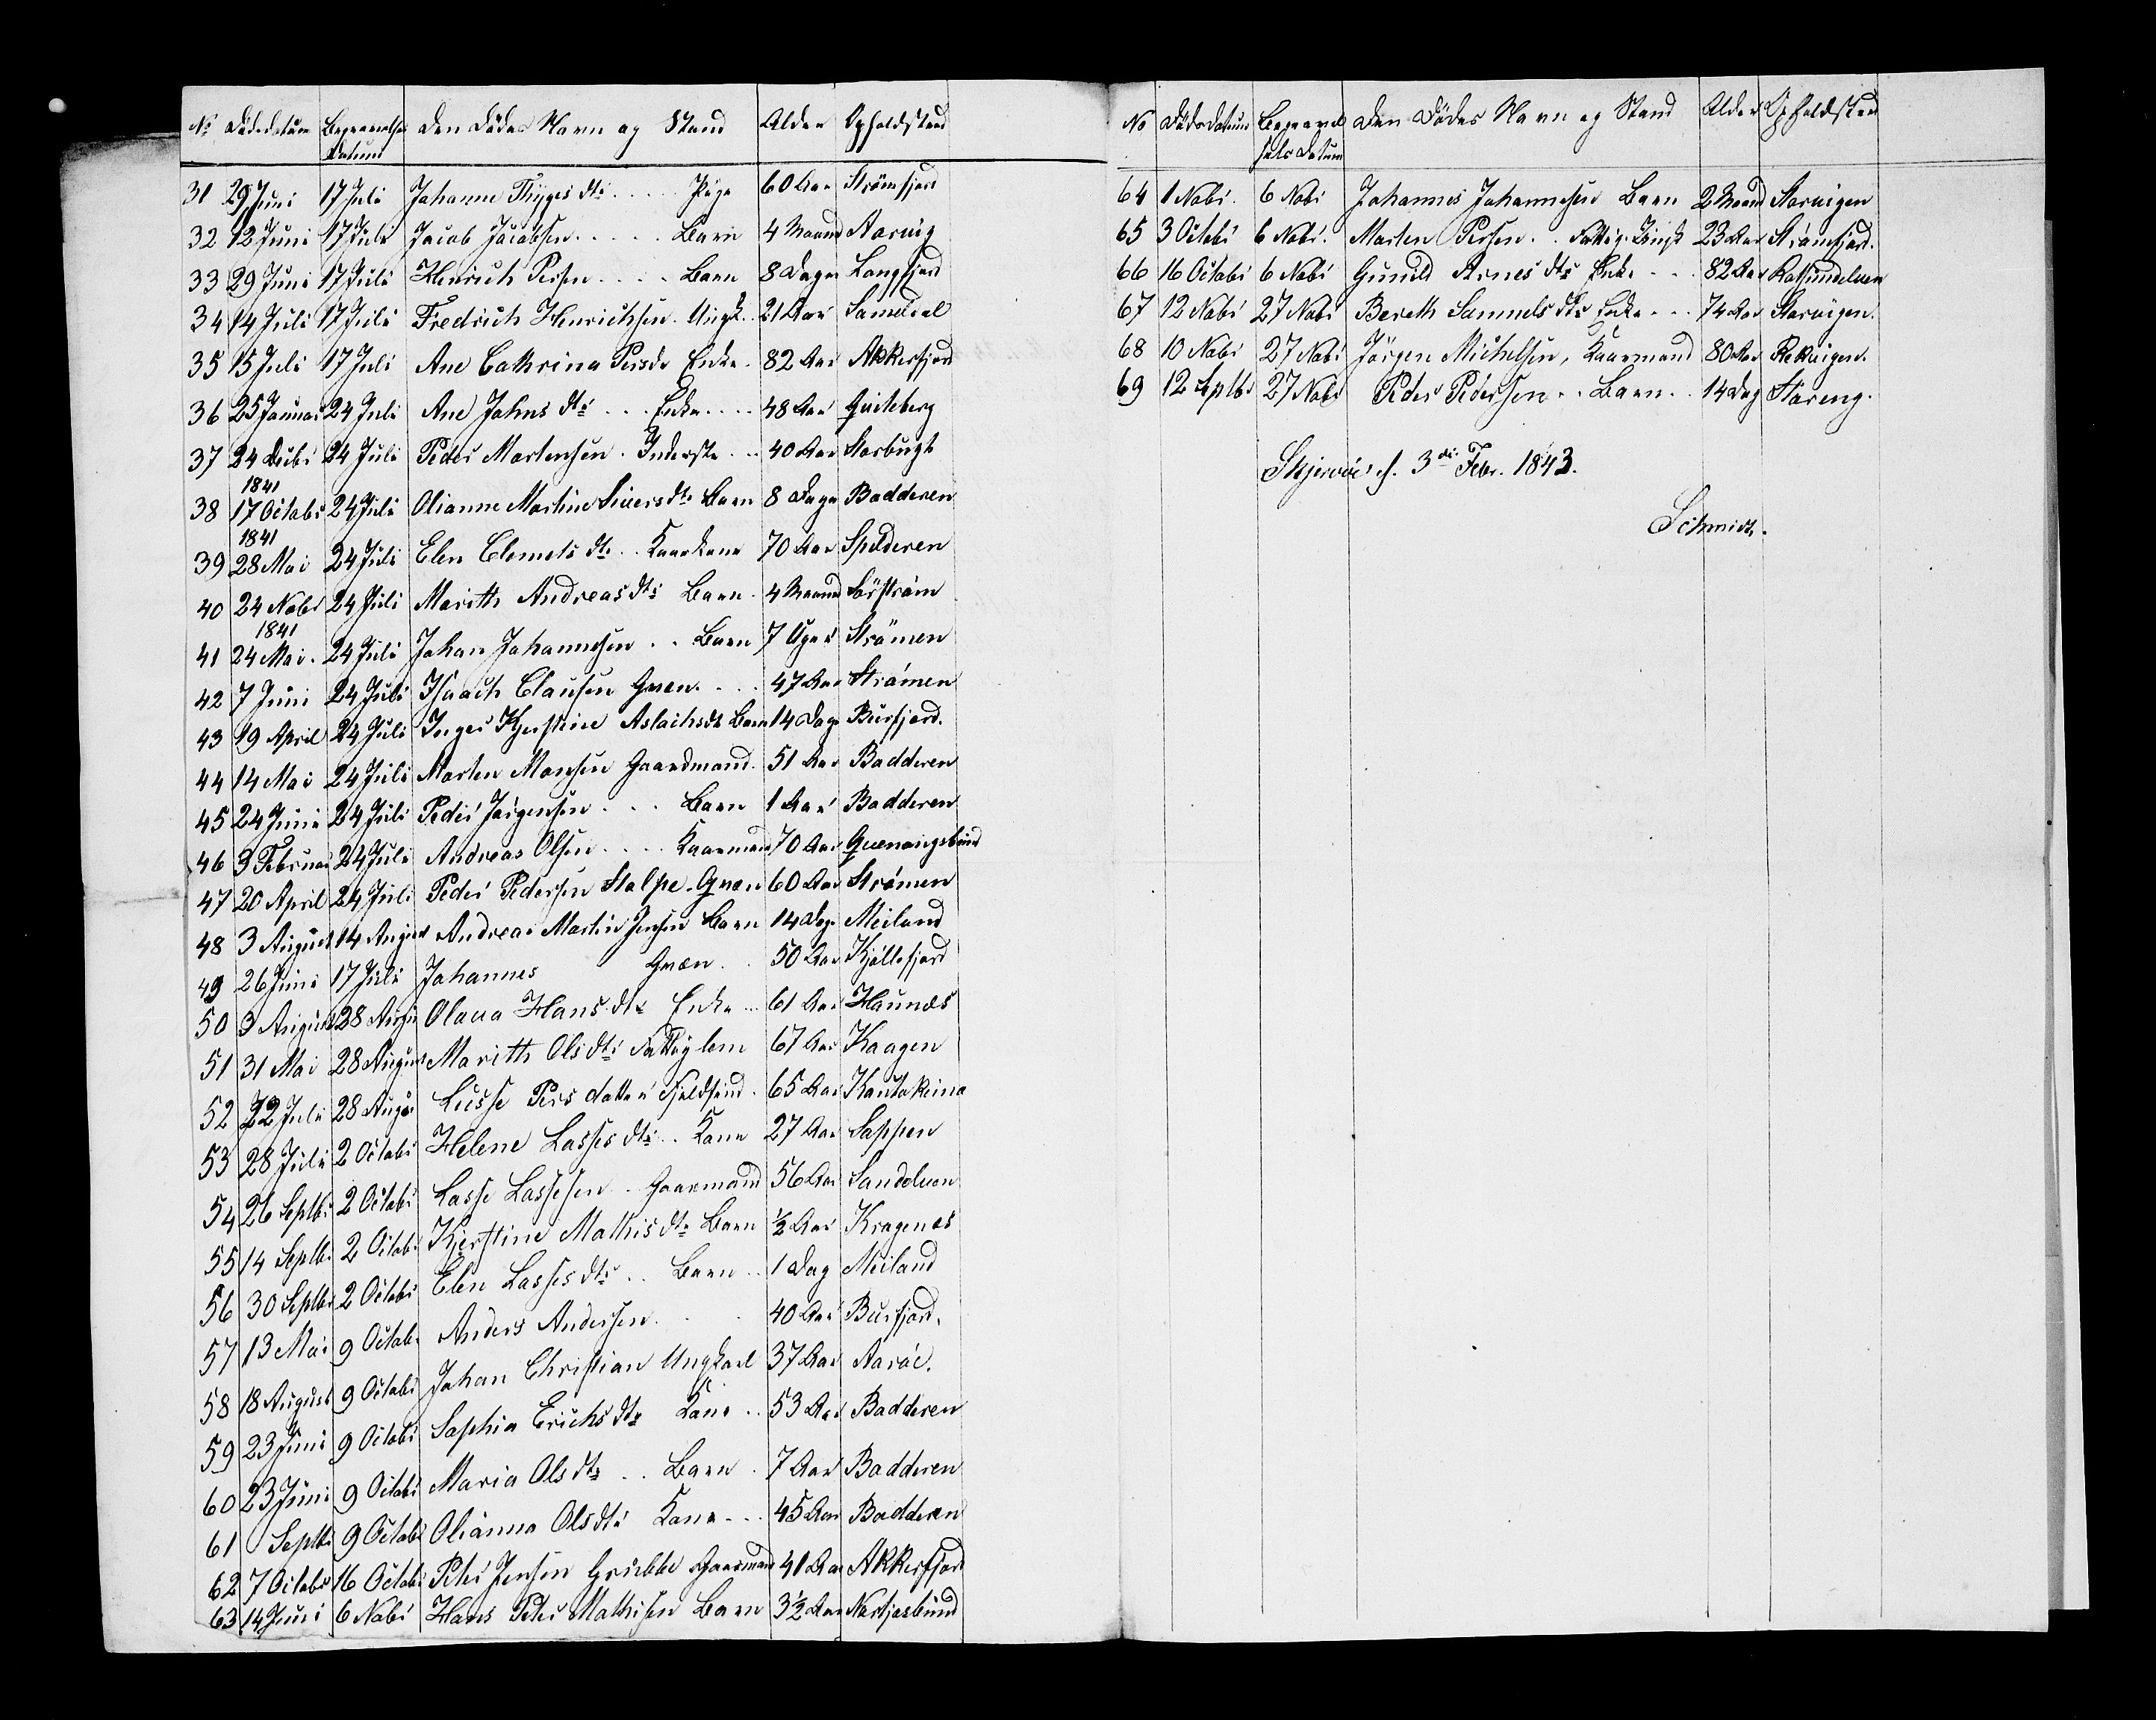 No Dödsdatum Begravelses Datum Den Dödes Navn og Stand Alder Opholdsted
31 29 Juni 17 Juli Johanne Thyges dtr .... Pige 60 Aar Strömfjord
32 12 Juni 17 Juli Jacob Jacobsen ..... Barn 4 Maaned Storvig
33 29 Juni 17 Juli Henrich Persen .... Barn 8 Dage Langfjord
34 14 Juli 17 Juli Fredrich Henrichsen . Ungk. 21 Aar Sameldal
35 15 Juli 17 Juli Ane Cathrina Persdr Enke . 82 Aar Akkerfjord
36 25 Januar 24 Juli Ane Johns dtr ... Enke .... 48 Aar Quiteberg
37 24 Decbr 1841 24 Juli Peder Mortensen . Inderste ... 40 Aar Storbugt
38 17 Octobr 1841 24 Juli Olianne Martine Siversdtr Barn 8 Dage Badderen
39 28 Mai 24 Juli Elen Clemets dtr .. Kaarkone 70 Aar Spilderen
40 24 Nobr 1841 24 Juli Marith Andreas dtr Barn . 4 Maaned Sörström
41 24 Mai . 24 Juli Johan Johannesen .. Barn 7 Uger Strömen
42 7 Juni 24 Juli Isaach Clausen Qvæn .... 47 Aar Strömen
43 19 April 24 Juli Inger Kjerstine Aslachsdr Barn 14 Dage Burfjord .
44 14 Mai 24 Juli Morten Monsen Gaardmand . 51 Aar Badderen
45 24 Juni 24 Juli Peder Jörgensen .... Barn 1 Aar Badderen
46 3 Februar 24 Juli Andreas Olsen .... Kaarmand 70 Aar Quænangsbund
47 20 April 24 Juli Peder Pedersen Stolpe . Qvæn 60 Aar Strömen
48 3 August 14 August Andreas Martin Jensen Barn 14 Dage Meiland
49 26 Juni 17 Juli Johannes Qvæn .. 50 Aar Kjöllefjord
50 3 August 28 Augu Olava Hans dtr Enke ... 61 Aar Haunæs
51 31 Mai 28 August Marith Ols dtr Fattiglem 67 Aar Kaagen
52 22 Juli 28 Augu Lusse Pers datter Fjeldfind . 65 Aar Kautokeino
53 28 Juli 2 Octobr Helene Lasses dtr .. Kone 27 Aar Sappen
54 26 Septbr 2 Octobr Lasse Lassesen . Gaarmand 56 Aar Sandelven
55 14 Septbr 2 Octobr Kjerstine Mathis dtr Barn ½ Aar Kragenæs
56 30 Septbr 2 Octobr Elen Lasses dtr .. Barn .. 1 Dag Meiland
57 13 Mai 9 Octobr Anders Andersen ... 40 Aar Burfjord .
58 18 August 9 Octobr Johan Christian Ungkarl 37 Aar Aaröe .
59 23 Juni 9 Octobr Sophia Erichs dtr Kone .. 53 Aar Badderen
60 23 Juni 9 Octobr Maria Ols dtr .. Barn . 7 Aar Badderen
61 Septbr 9 Octobr Olianna Ols dtr Kone ... 45 Aar Badderen
62 7 Octobr 16 Octobr Peter Jensen Grubbe Gaarmand 41 Aar Akkerfjord
63 14 Juni 6 Nobr Hans Peter Mathisen Barn 3½ Aar
No Dödsdatum Begravelses Datum Den Dödes Navn og Stand Alder Opholdsted
64 1 Nobr . 6 Nobr Johannes Johannesen Barn 2 Maand Storvigen
65 3 Octobr 6 Nobr . Morten Persen .. Fattig 23 Aar Strömfjord .
66 16 Octobr 6 Nobr Gunild Arnes dtr Enke ... 82 Aar Rotsundelven
67 12 Nobr 27 Nobr Bereth Samuels dtr Enke ... 74 Aar Storvigen .
68 10 Nobr 27 Nobr Jörgen Michelsen , Kaarmand 80 Aar Rekvigen .
69 12 Septbr 27 Nobr Peder Pedersen .. Barn .. 14 Dag Storeng .
Skjervöe d. 3die Febr. 1843.
Schmidt.